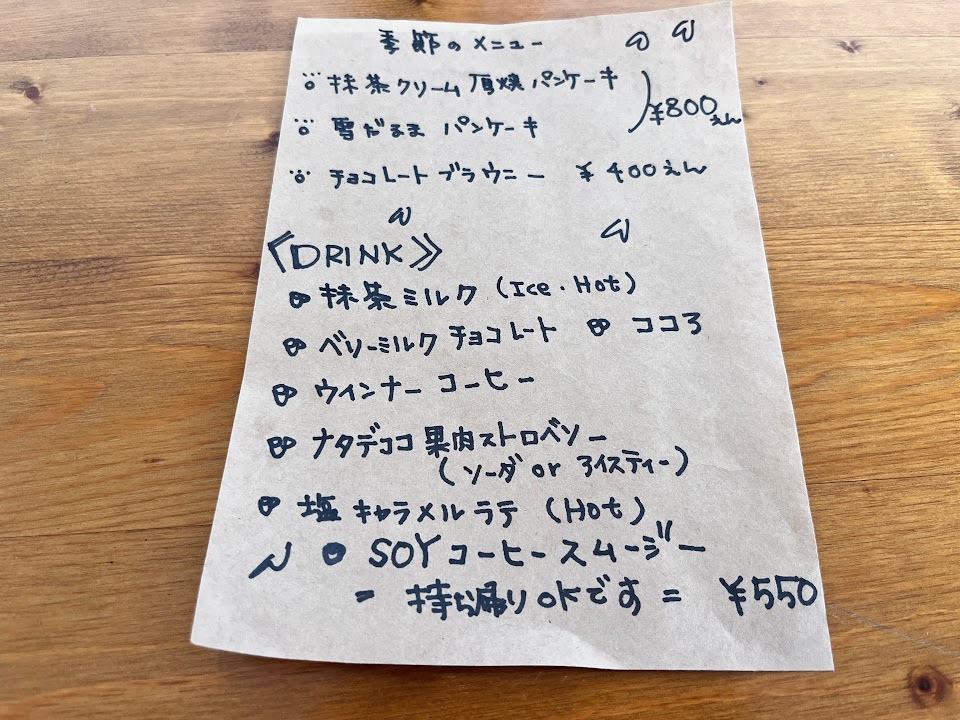 季節のメニュー
抹茶クリーム頂焼パンケーキ
雪だるまパンケーキ
¥800えん
チョコレートブラウニー ¥400えん
《DRINK》
抹茶ミルク (Ice・Hot)
ベリーミルクチョコレート ココア
ウインナーコーヒー
ナタデココ果肉ストロベリー
(ソーダ or アイスティー)
塩キャラメルラテ (Hot)
SOYコーヒースムージー
= 持ち帰りOKです = ¥550